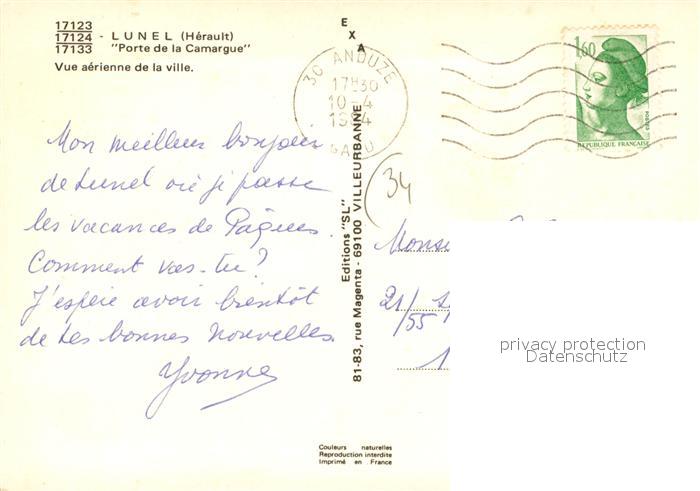 17123
17124 - LUNEL (Hérault)
17133 "Porte de la Camargue"
Vue aérienne de la ville.
EXA
30 ANDUZE
17H30
10-4
1984
GARD
1,60
POSTES
REPUBLIQUE FRANÇAISE
Mon meilleur bonjour
de Lunel où je passe
les vacances de Pâques.
Comment vas-tu ?
J'espère avoir bientôt
de tes bonnes nouvelles.
Yvonne
34
Editions "SL"
81-83, rue Magenta - 69100 VILLEURBANNE
21/
/55
1
privacy protection
Datenschutz
Couleurs naturelles
Reproduction interdite
Imprimé en France